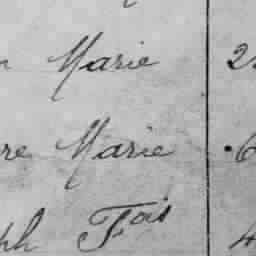 Marie 2
re Marie 6
ph Fois 4